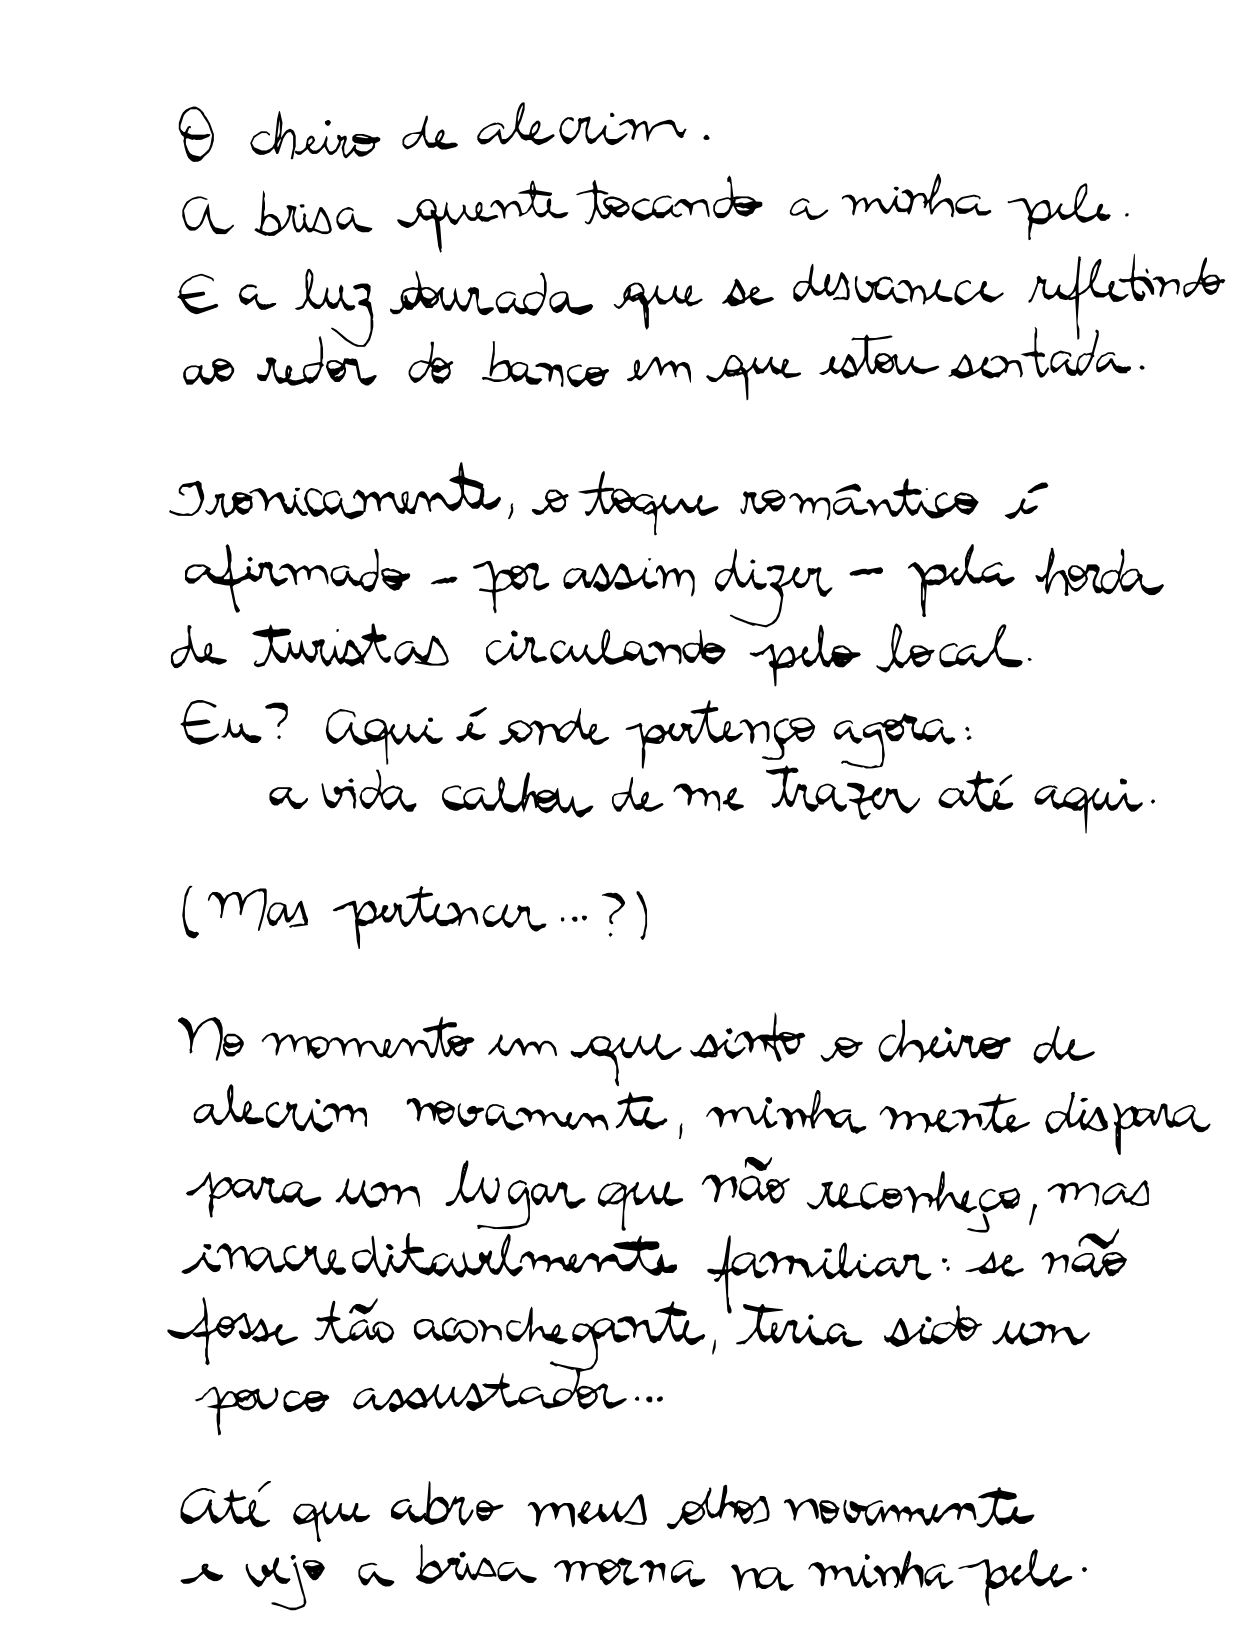 O cheiro de alecrim.
A brisa quente tocando a minha pele.
E a luz dourada que se desvanece refletindo
ao redor do banco em que estou sentada.
Ironicamente, o toque romântico é
afirmado - por assim dizer - pela horda
de turistas circulando pelo local.
Eu? Aqui é onde pertenço agora:
a vida calhou de me trazer até aqui.
(Mas pertencer...?)
No momento em que sinto o cheiro de
alecrim novamente, minha mente dispara
para um lugar que não reconheço, mas
inacreditavelmente familiar: se não
fosse tão aconchegante, teria sido um
pouco assustador...
Até que abro meus olhos novamente
e vejo a brisa morna na minha pele.